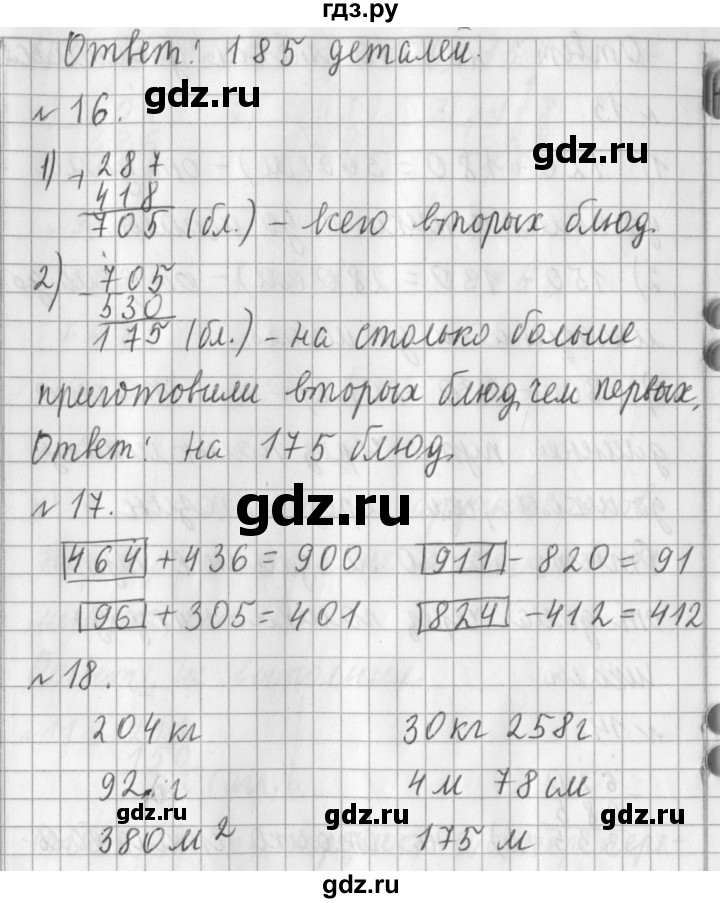 гдз.ру
Ответ: 185 деталей.
№ 16.
gdz.ru
gdz.ru
1) + 287
418
705 (бл.) – всего вторых блюд.
2) - 705
530
175 (бл.) – на столько больше
приготовили вторых блюд, чем первых.
Ответ: на 175 блюд.
gdz.ru
№ 17.
464 + 436 = 900    911 - 820 = 91
96 + 305 = 401    824 - 412 = 412
№ 18.
204 кг    30 кг 258 г
92 г    4 м 78 см
gdz.ru    gdz.ru
380 м²    175 м
gdz.ru